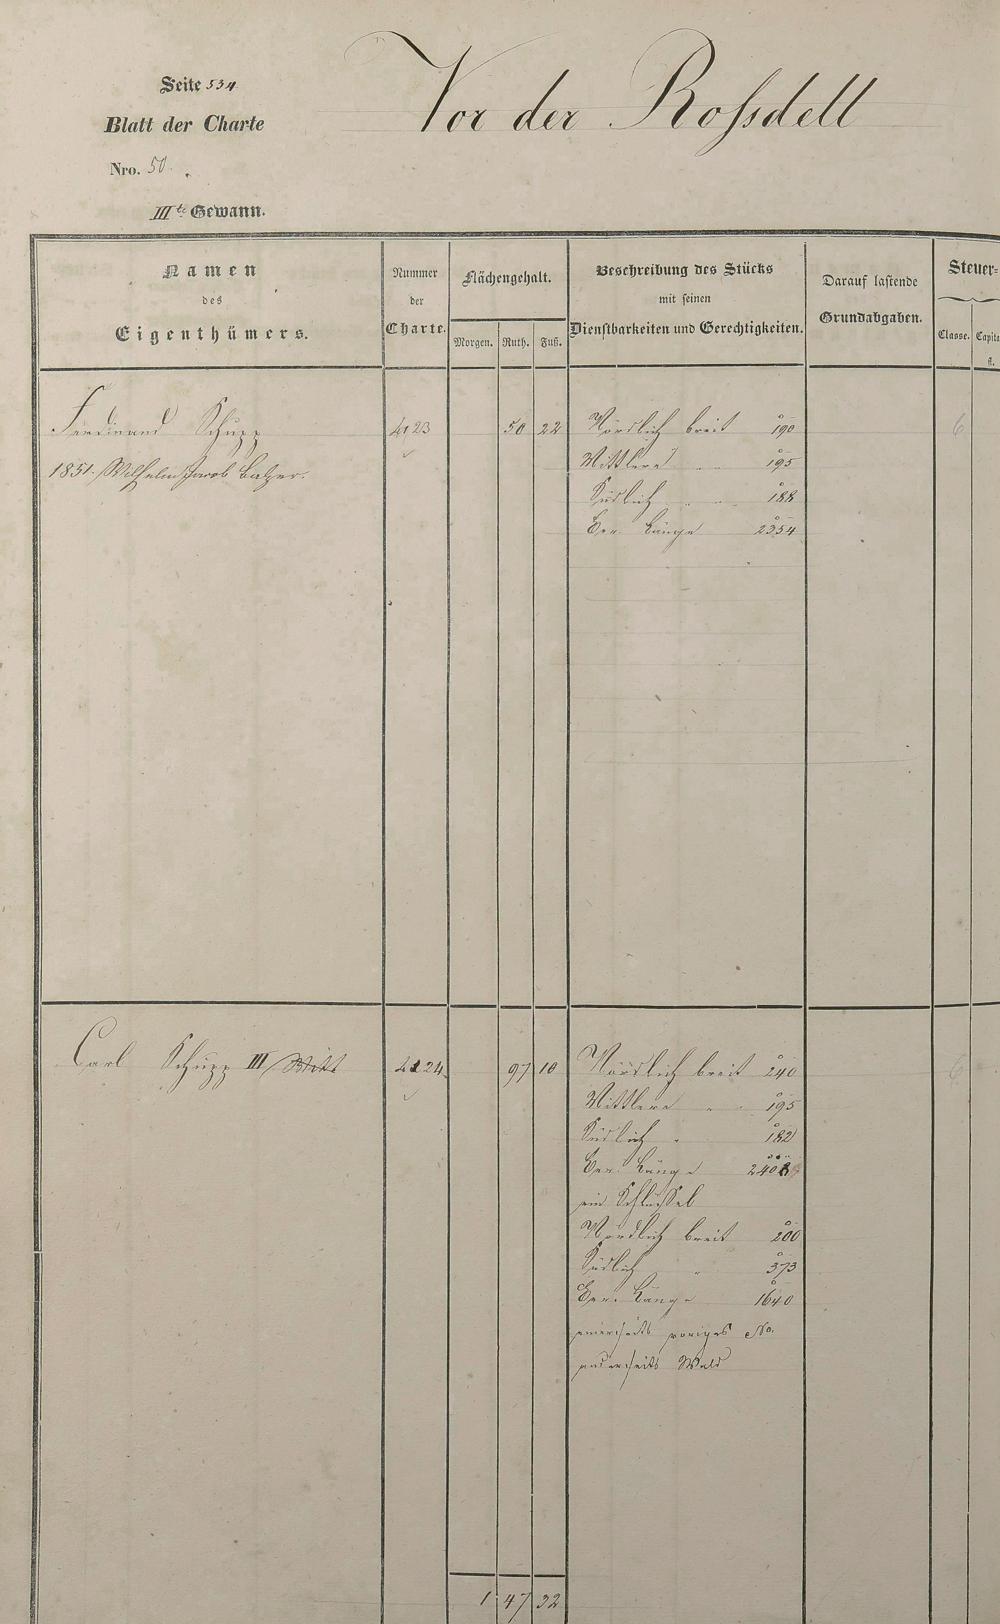 Seite 534
Vor der Roſsdell
Blatt der Charte
Nro. 50.
III te Gewann.
Namen
des
Eigenthümers.
Nummer
der
Charte.
Flächengehalt.
Morgen. Ruth. Fuß.
Beschreibung des Stücks
mit seinen
Dienstbarkeiten und Gerechtigkeiten.
Darauf lastende
Grundabgaben.
Steuer-
Classe. Capita
fl.
Ferdinand Schupp 4123 50 22 Nördlich breit 190 6
1851. Wilhelm Jacob Balzer. Mittlere " " 195
Südlich " " 188
Ger. Länge 2354
Carl Schupp III Witt 4124 97 10 Nördlich breit 240 6
Mittlere " " 195
Südlich " 182
Ger. Länge
ein Schlüssel
Nördlich breit 200
Südlich " 373
Ger. Länge 1640
einerseits voriges No.
anderseits Wald
1 47 32